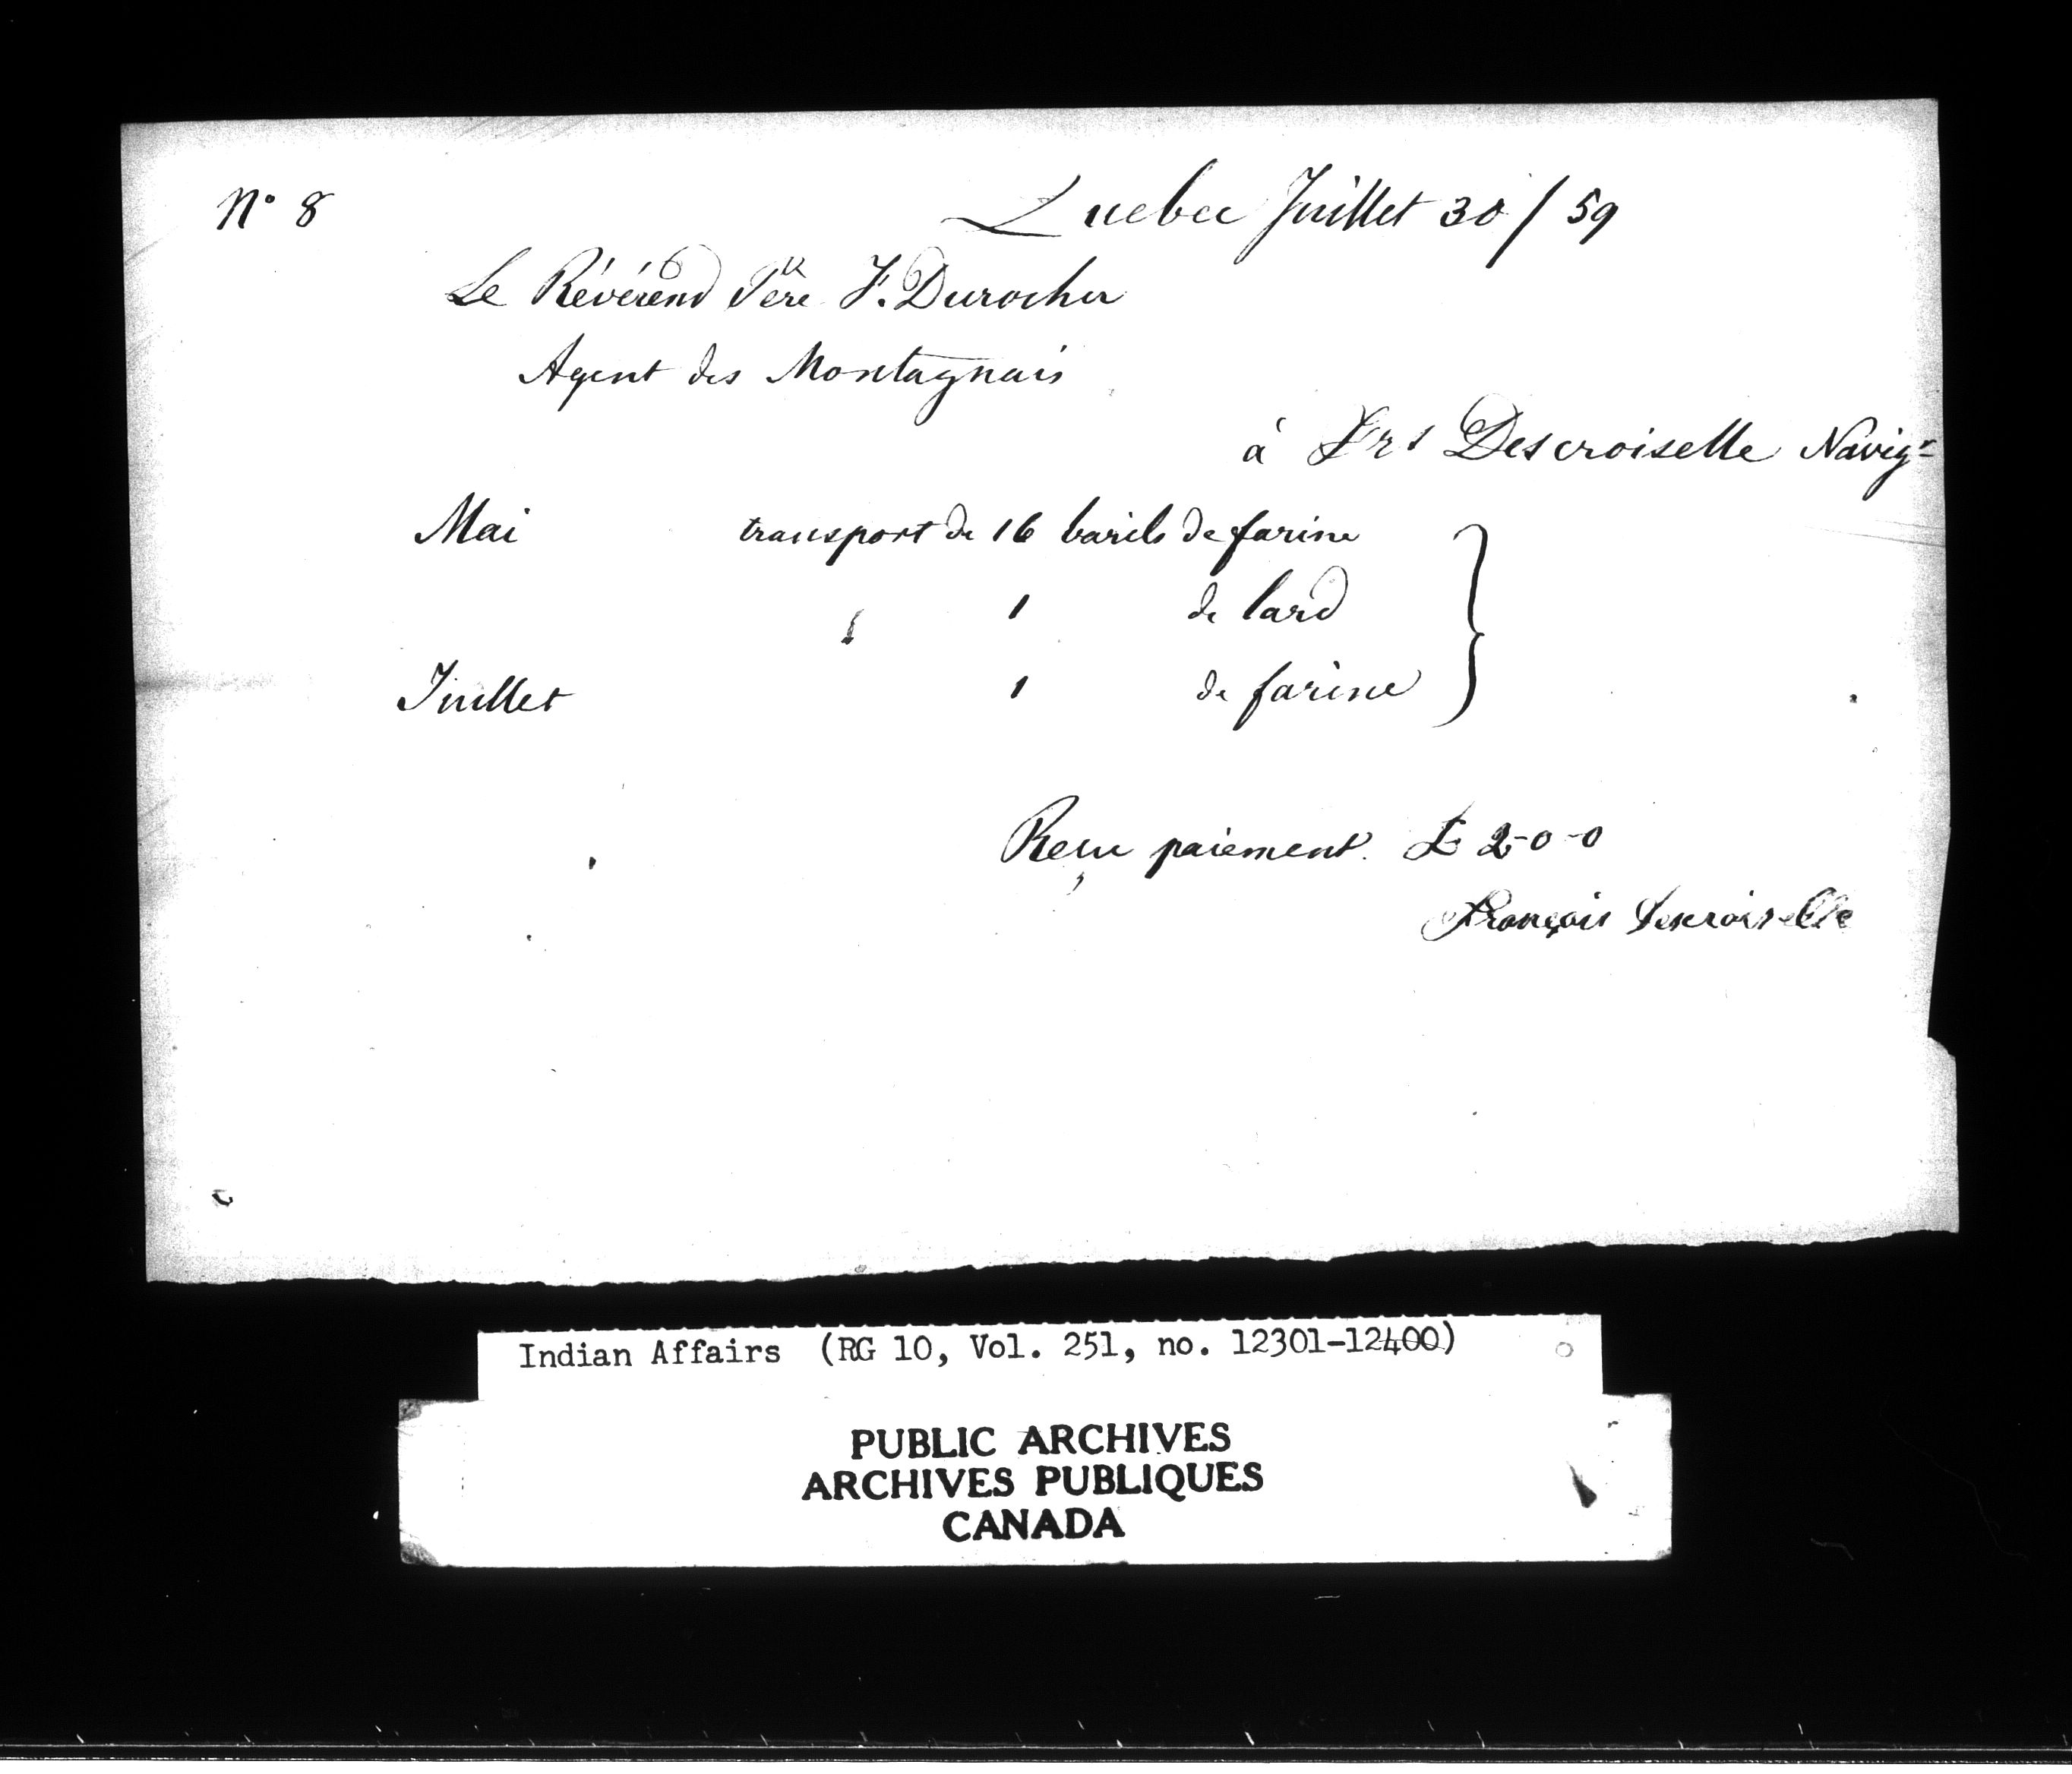 N° 8
Quebec Juillet 30/59
Le Révérend Père F. Durocher
Agent des Montagnais
à Frs Descroiselle Navigr
Mai transport de 16 barils de farine
1 de lard
Juillet 1 de farine
Reçu paiement. £ 2-0-0
François Descroiselle
Indian Affairs (RG 10, Vol. 251, no. 12301-12400)
PUBLIC ARCHIVES
ARCHIVES PUBLIQUES
CANADA